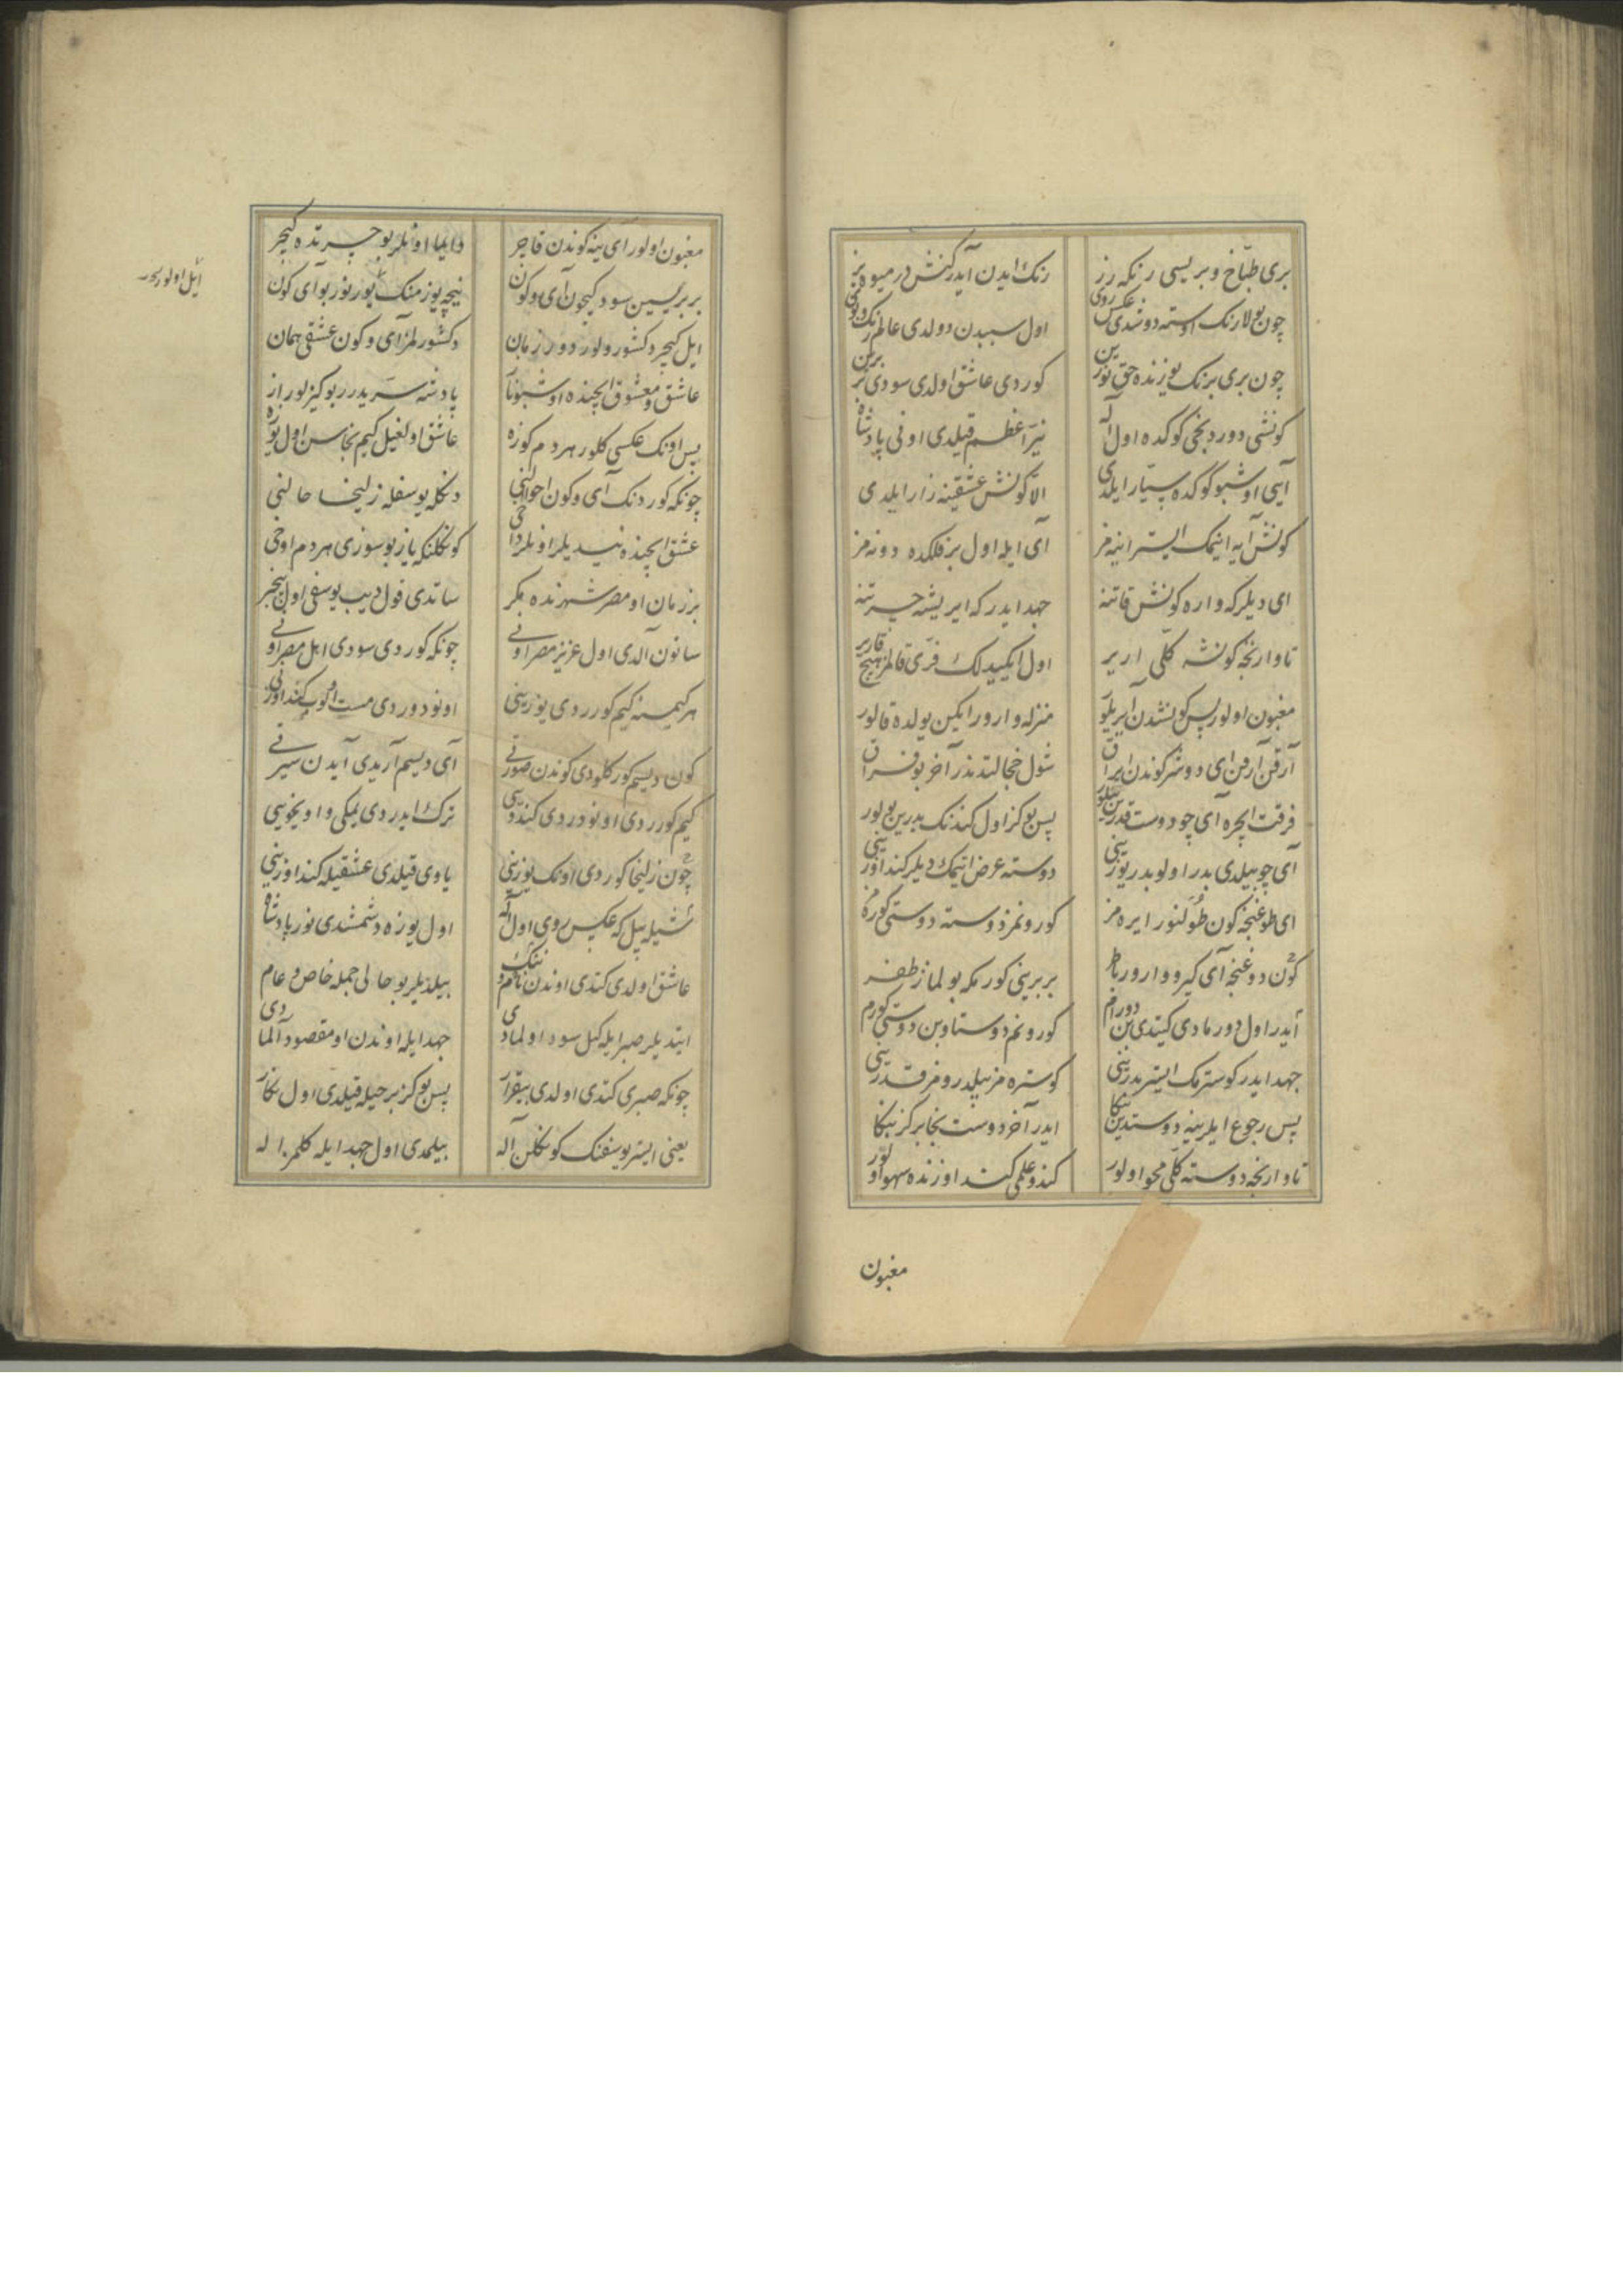 بری طبّاخ و بریسی رنکه رز رنک ایدن آیدر کنش در میوه بز
چون بولارنک اوسته دوشدی عکس روی اول سببدن دولدی عالم رنک و بوی
چون بری برنک یوزنده حق نورین کوردی عاشق اولدی سودی بربرین
کونشی دوردنجی کوکده اول اله نیّر اعظم قیلدی اونی پادشاه
آیی اوشبو کوکده سیّار ایلدی الّا کونش عشقینه زار ایلدی
کونش آیه اینمک ایستر اینه مز آی ایله اول بر فلکده دونه مز
ای دیلر که واره کونش قاتنه جهد ایدر که ایریشه حسرتنه
تا وارنجه کونشه کلّی اریر اول ایکیدلک فرّی قالمز هیچ قاریر
مغبون اولور پس کونشدن آیریلور منزله وارور ایکین یولده قالور
آرقن آرقن ای دوشر کوندن ایراق شول خجالتدندر آخر بو فراق
فرقت ایچره آی چو دوست قدرین بیلور پس بو کز اول کندنک بدرین بولور
آی چو بیلدی بدر اولوبدر یوزینی دوسته عرض اتیمک دیلر کند اوزینی
ای طوغنجه کون طولنور ایره مز کورونمز دوسته دوستی کوره مز
کون دوغنجه آی کیرو وارور باطر بربرینی کورمکه بولماز ظفر
آیدر اول دورمادی کیتدی بن دورام کورونم دوستا و بن دوستی کورم
جهد ایدر کوسترمک ایستر بدرینی کوستره مز بیلدرومز قدرینی
پس رجوع ایلر ینه دوستدین یکا ایدر آخر دوست بخا بر کز بکا
تا وارنجه دوسته کلّی محو اولور کندو علمی کند اوزنده سهو اولور
مغبون
مغبون اولور آی ینه کوندن قاچر دایما اونلر بو حسرتده کیچر
بربریسین سود کیچون آی و کون نیچه یوز منک یور یورر بو آی کون
ایل کیچر دکشورولور دور زمان دکشورلمز آی و کون عشقی همان
عاشق و معشوق ایچنده اوشبو ناز پادشه سریدر بو کیزلو راز
پس اونک عکسی کلور هردم کوزه عاشق اولغیل کیم بخاسن اول یوزه
چونکه کوردنک آی و کون احوالنی دنکله یوسفله زلیخا حالنی
عشق ایچنده نیدیلر اونلر داخی کونکلنکه یاز بو سوزی هردم اوخی
بر زمان او مصر شهرنده مکر ساتدی قول دیب یوسفی اول بیخبر
ساتون آلدی اول عزیز مصر اونی چونکه کوردی سودی اهل مصر اونی
هر کیمسنه کیم کورردی یوزینی اونودوردی مست اولوب کند اوزنی
کون دیسم کورکلودی کوندن صورتی آی دیسم آریدی آیدن سیرتی
کیم کورردی اونودردی کیندوسی ترک ایدردی یمکی و اویخوسی
چون زلیخا کوردی اونک یوزینی یاوی قیلدی عشقیله کند اوزینی
شیله بیل که عکس روی اول اله اول یوزه دشمشدی نور پادشاه
عاشق اولدی کتدی اوندن ننک و نام بیلدیلر بو حالی جمله خاص و عام
ایتدیلر صبر ایله کل سود اولمادی جهد ایله اوندن او مقصود آلمادی
چونکه صبری کتدی اولدی بیقرار پس بو کز بر حیله قیلدی اول نکار
یعنی ایستر یوسفنک کونکلن آله بیلمدی اول جهد ایله کلمز اله